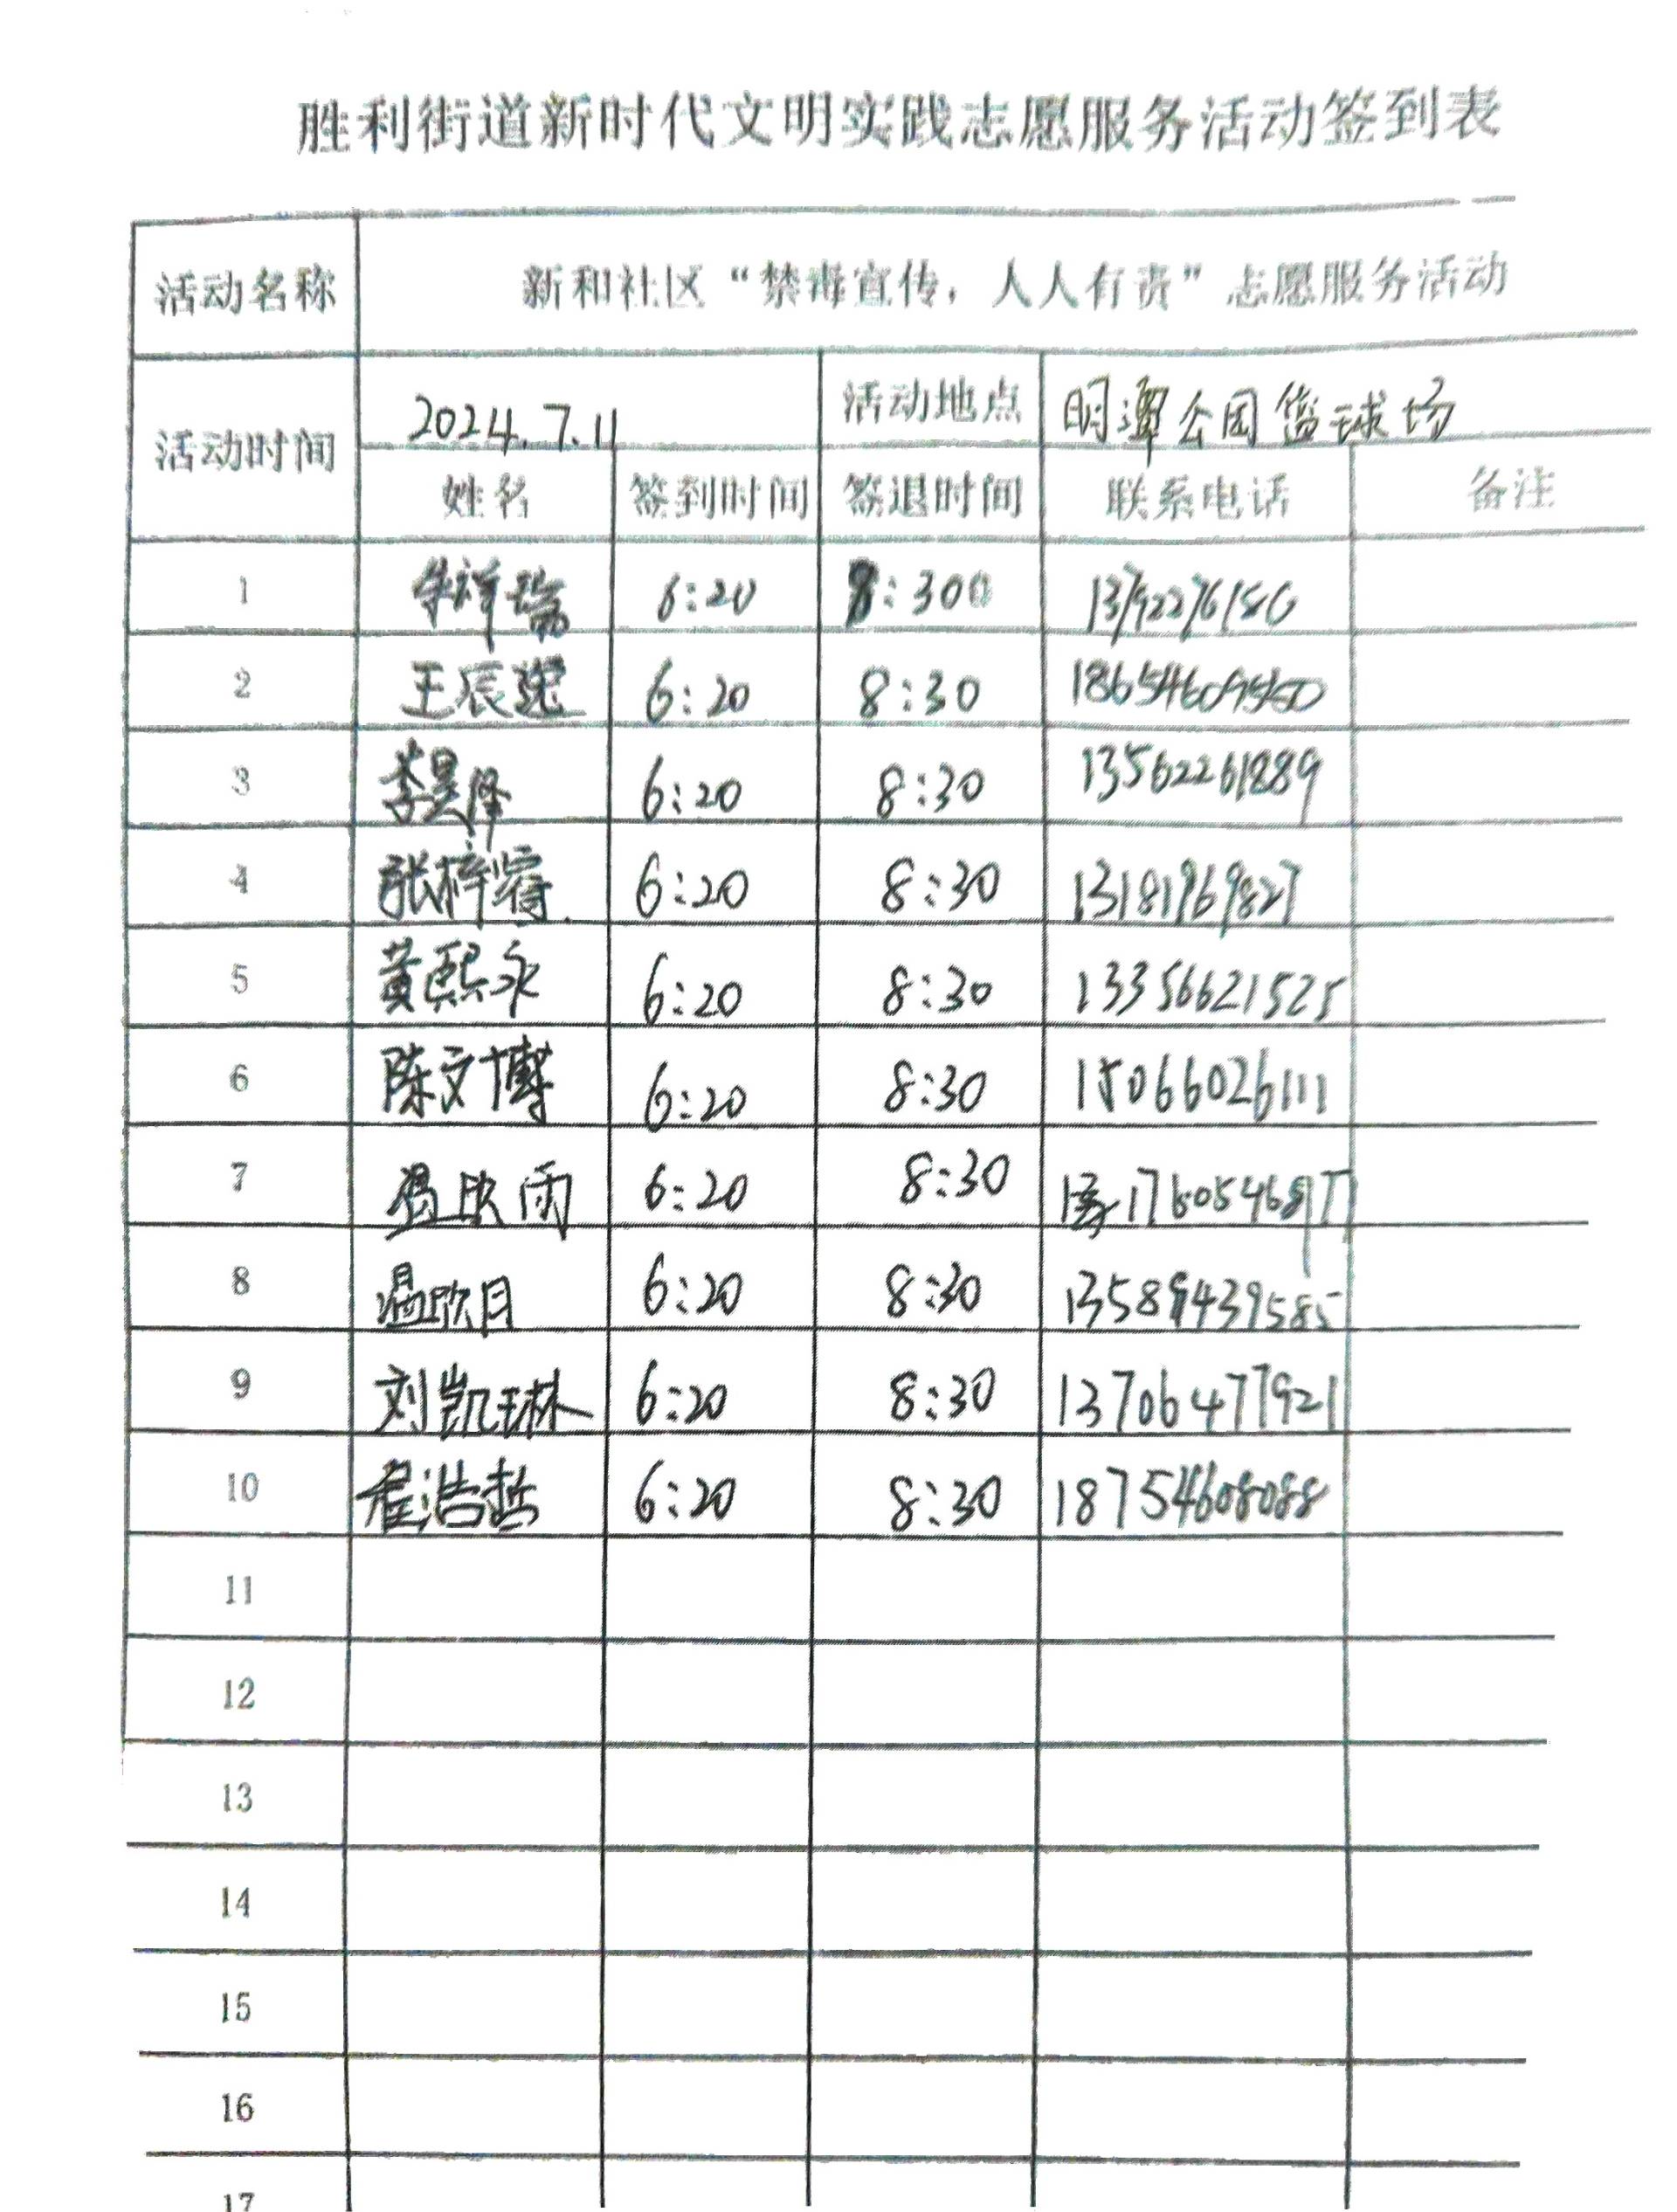 胜利街道新时代文明实践志愿服务活动签到表
活动名称 新和社区“禁毒宣传，人人有责”志愿服务活动
活动时间 2024.7.11 活动地点 明潭公园篮球场
姓名 签到时间 签退时间 联系电话 备注
1 祥瑞 6:20 8:300
2 王辰逸 6:20 8:30
3 李昊泽 6:20 8:30 13562261889
4 张梓睿 6:20 8:30 13181969827
5 黄熙永 6:20 8:30 13356621525
6 陈文博 6:20 8:30 15066026111
7 温欣雨 6:20 8:30
8 温欣月 6:20 8:30 13589439585
9 刘凯琳 6:20 8:30 13706477921
10 浩哲 6:20 8:30 18754608088
11
12
13
14
15
16
17